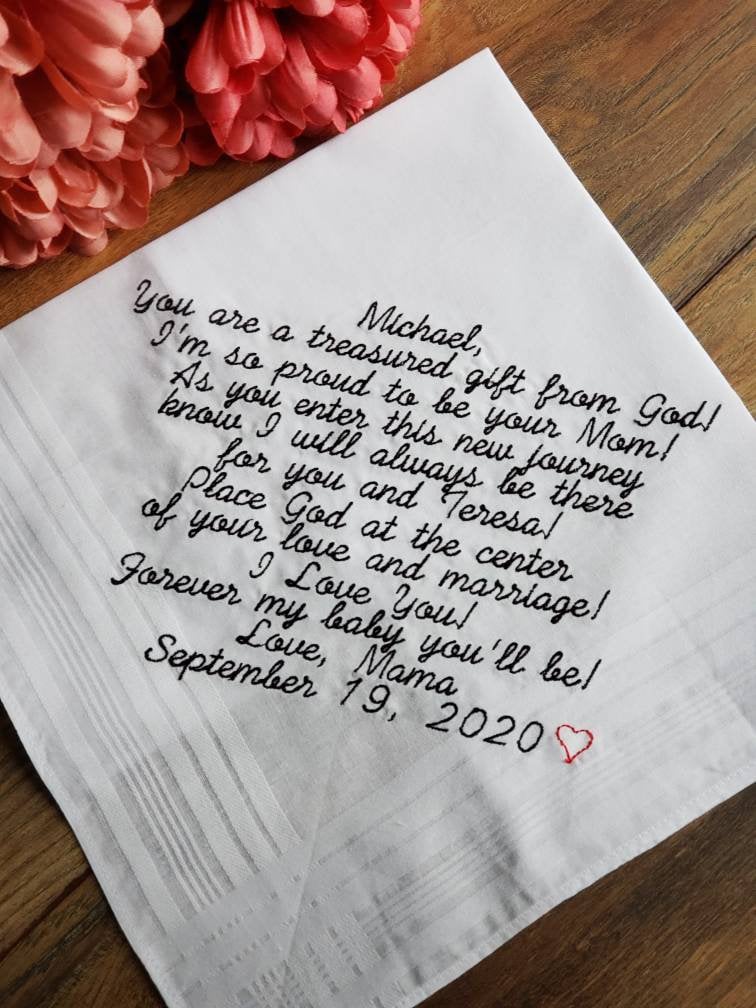 Michael,
You are a treasured gift from God!
I'm so proud to be your Mom!
As you enter this new journey
know I will always be there
for you and Teresa!
Place God at the center
of your love and marriage!
I Love You!
Forever my baby you'll be!
Love, Mama
September 19, 2020